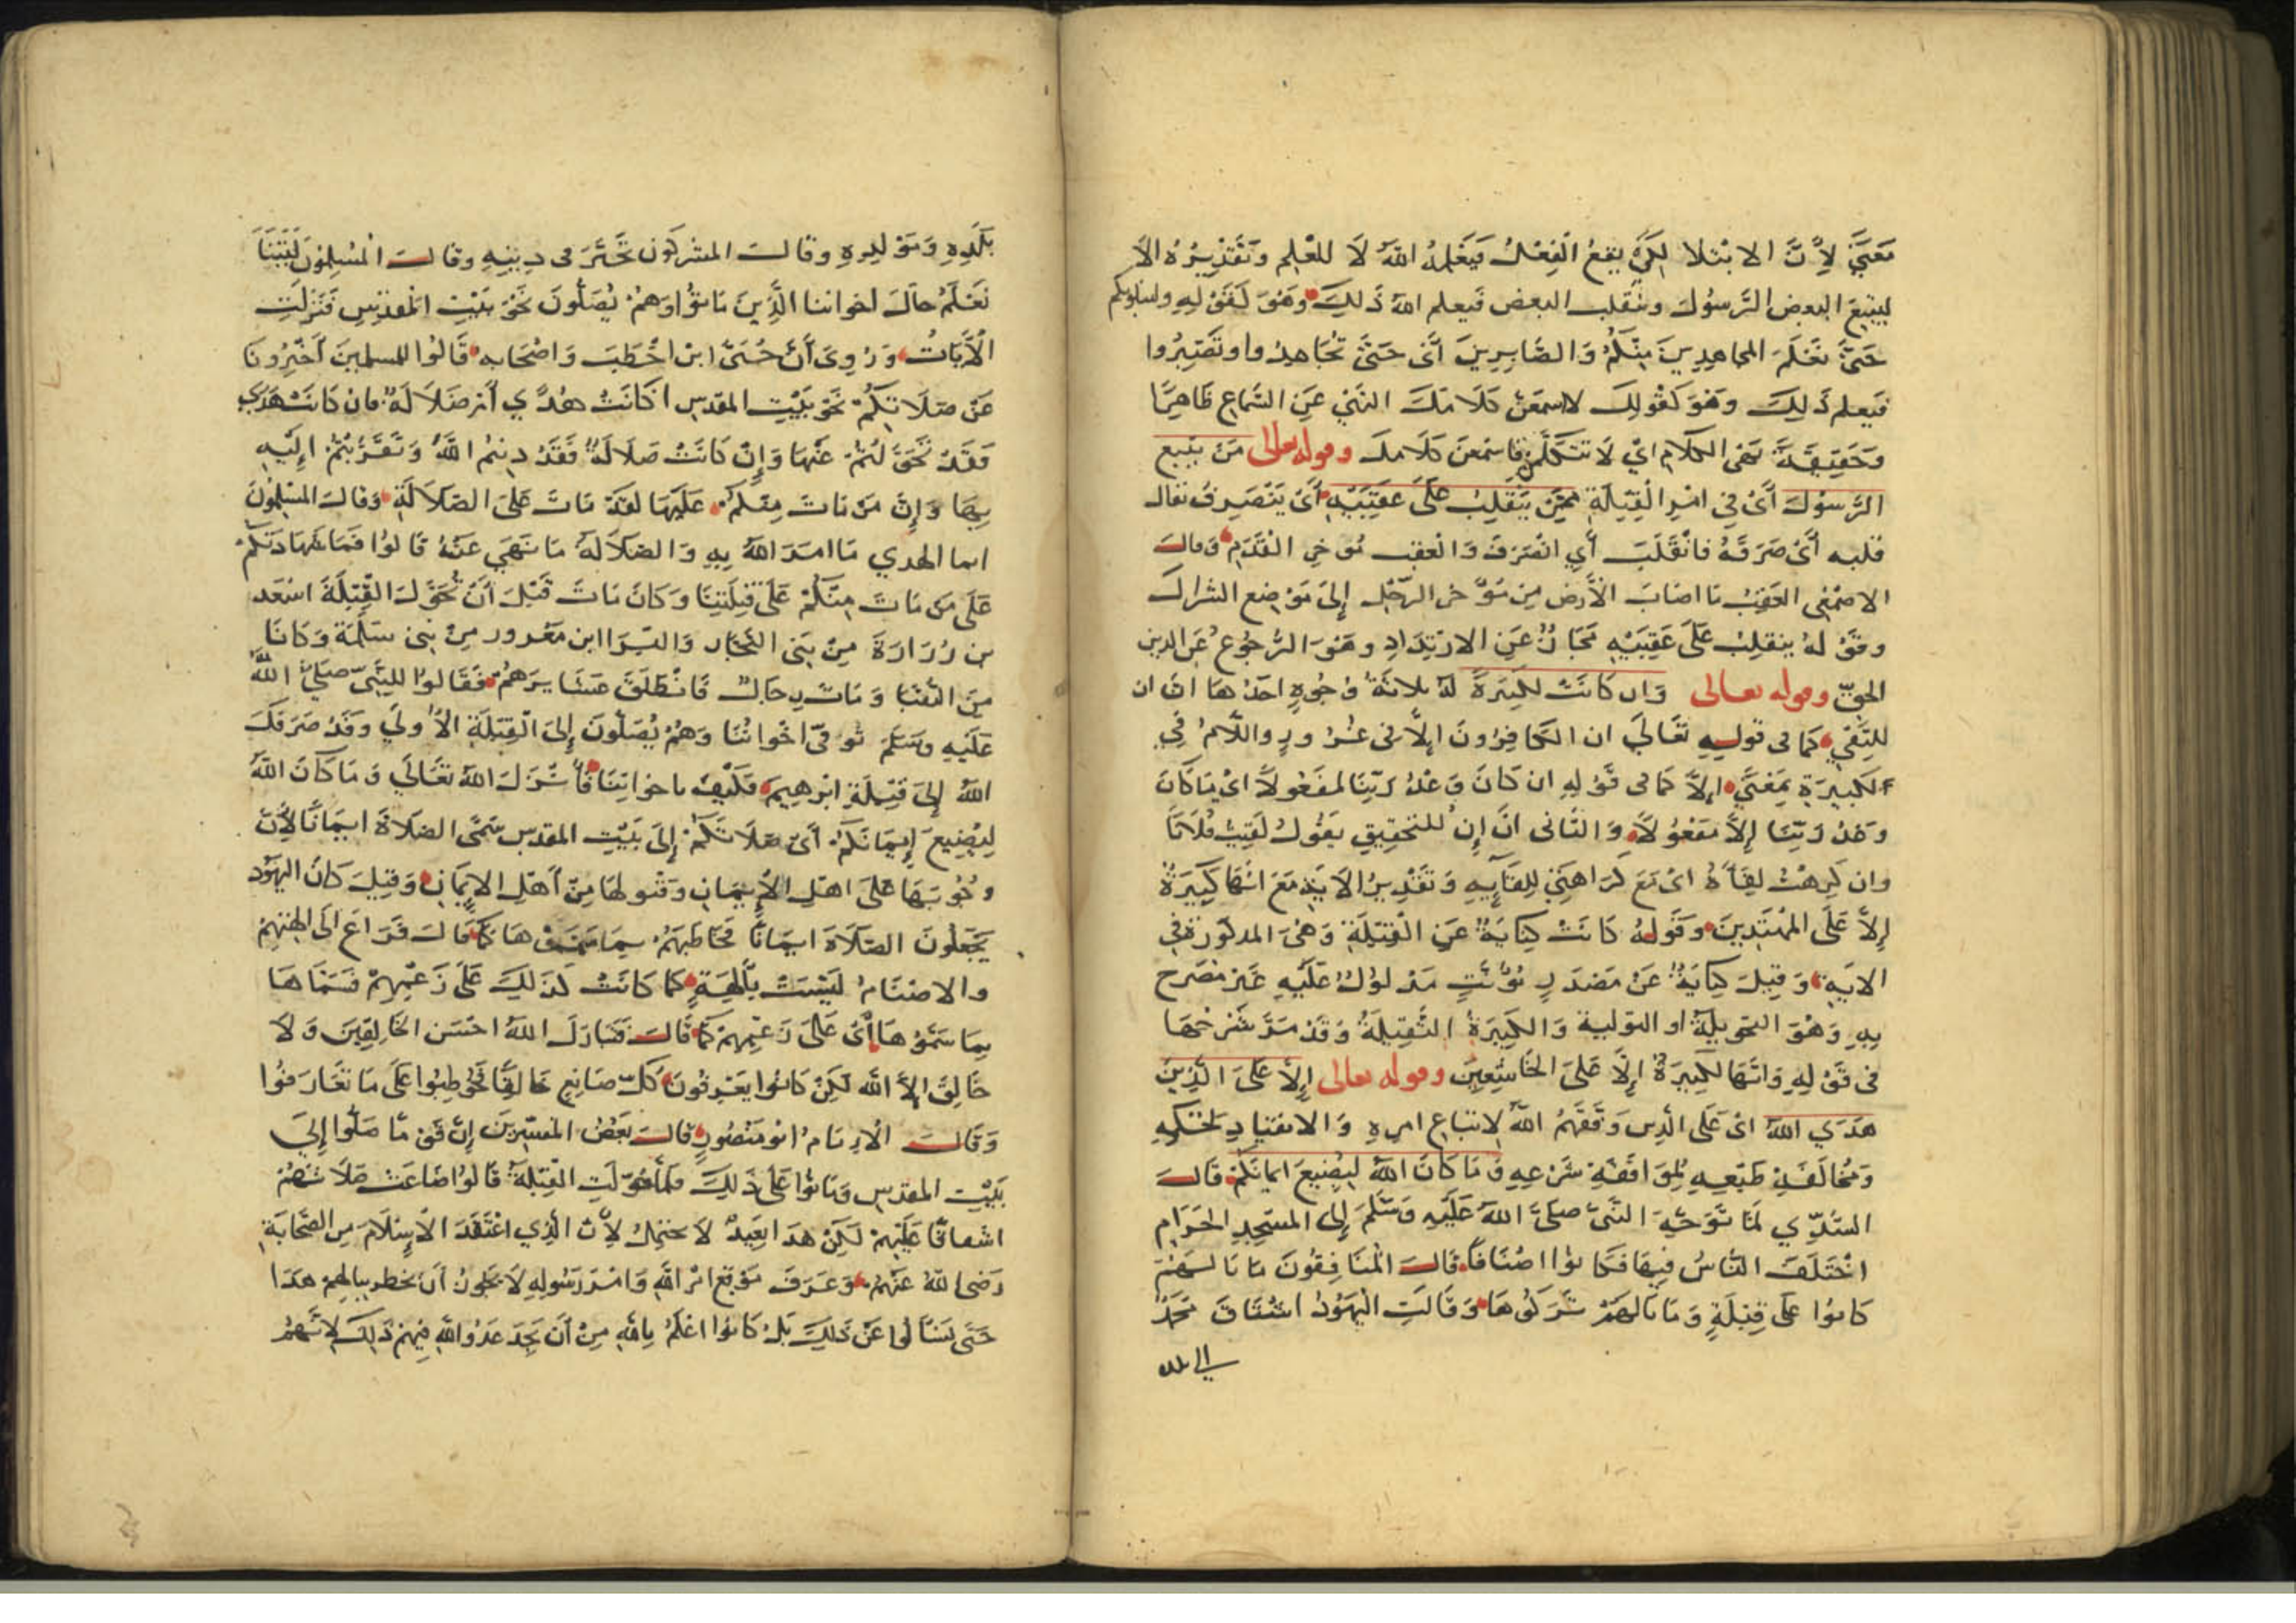 مَعْنًى لِأَنَّ الابتلا لِكَيْ يَقَعُ الْفِعْلُ فَيَعْلَمُهُ اللهُ لَا لِلْعِلْمِ وَتَقْدِيرُهُ الاَّ
ليتبعَ البعض الرَّسُولَ وينقلب البعض فيعلم اللهُ ذَلِكَ وَهُوَ كَقَوْلِهِ ولنبلونكم
حَتَّى نَعْلَمَ المجاهدِينَ مِنْكُمْ وَالصَّابِرِينَ أَىْ حَتَّى تُجَاهِدُوا وتَصْبِرُوا
فيعلم ذَلِكَ وَهُوَ كَقَوْلِكَ لاسمعَنَّ كَلَامَكَ النهْيُ عَنِ السَّمَاعِ ظَاهِرًا
وَحَقِيقَةً نهى الكلام اىْ لَا تَتَكَلَّمَنَّ فاسْمَعَنَّ كَلَامكَ وقوله تعالى مَنْ يَتبع
الرَّسُولَ أَىْ فِي امْرِ الْقِبْلَةِ مِمَّنْ يَنْقَلِبُ عَلَى عَقِبَيْهِ أَىْ يَنْصَرِفُ يقال
قلبه أَىْ صَرَفَهُ فَانْقَلَبَ أَيِ انْصَرَفَ وَالعقب مُوخرِ الْقَدَمِ وَقالَ
الاصْمَعِى العَقِبُ مَا اصَابَ الأَرْضَ مِنْ مُوَخَّرِ الرِّجْلِ إِلَى مَوْضِعِ الشراك
وقَوْلهُ ينقلِبُ عَلَى عَقِبَيْهِ مَجَازٌ عَنِ الارْتِدَادِ وهُوَ الرُّجُوعُ عَنِ الدين
الحقِّ وقوله تعالى وَان كَانَتْ لَكَبِيرَةً لهُ ثلاثَةُ وُجُوهٍ احَدُهَا انَّ ان
للنَّفْيِ كَما فى قولِهِ تَعَالَى ان الكَافِرُونَ إِلاَّ فى غُرُورٍ واللَّامُ فِي
لَكَبِيرَةٍ بِمَعْنَى إِلاَّ كَما فى قَوْلِهِ ان كَانَ وَعْدُ رَبِّنَا لَمَفْعُولاً اىْ مَا كَانَ
وَعْدُ رَبِّنَا إِلاَّ مَفْعُولاً وَالثَّانى انَّ إِنْ للتحْقِيقِ يَقُولُ لَقِيتُ فُلَانًا
وان كَرِهْتُ لِقَآءَهُ اىْ مَعَ كَرَاهَتِي لِلِقَآئِهِ وَتَقْدِيرُ الاَيَةِ مَعَ انَّهَا كَبِيرَةٌ
إِلاَّ عَلَى الْمُهْتَدِينَ وقَوْلهُ كَانَتْ كِنَايَةٌ عَنِ الْقِبْلَةِ وَهْىَ المذكُورَة فِي
الايَةِ وَقِيلَ كِنَايَةٌ عَنْ مَصْدَرٍ مُوَنَّثٍ مَدْلُولٌ عَلَيْهِ غَيْر مُصَرح
بِهِ وَهْوَ التحْوِيلَةُ او التولية وَالكَبِيرَةُ الثَّقِيلَةُ وَقَدْ مَرَّ شَرْحُهَا
فى قَوْلِهِ وَانَّهَا لَكَبِيرَةٌ إِلَّا عَلَى الخَاشِعِينَ وقوله تعالى إِلَّا عَلَى الَّذِينَ
هَدَي اللهُ اىْ عَلَى الَّذِينَ وَفَّقَهُمُ اللهُ لِاتباعِ امرهِ وَالانقيَادِ لِحُكْمِهِ
وَمُخَالَفَةِ طَبْعِهِ لِمُوَافَقَةِ شَرْعِهِ وَمَا كَانَ اللهُ لِيُضِيعَ ايمانَكُمْ قَالَ
السُّدِّي لَمَّا تَوَجَّهَ النَّبِيُّ صَلَّى اللهُ عَلَيْهِ وَسَلَّمَ إِلى المسْجِدِ الحَرَامِ
اخْتَلَفَ النَّاسُ فِيهَا فَكَانُوا اصْنَافًا قَالَ الْمُنَافِقُونَ مَا بَالُهُمْ
كَانُوا عَلَى قِبْلَةٍ وَمَا بَالُهُمْ تَرَكُوهَا وَقَالَتِ الْيَهُودُ اشْتَاقَ مُحَمَّدٌ
الى بلده
بَلَدِهِ وَمَوْلِدِهِ وقَالَ المشركُون تَحَيَّرَ فى دِينِهِ وقَالَ الْمُسْلِمُونَ لَيْتَنَا
نَعْلَمُ حالَ اخواننا الَّذِينَ مَاتُوا وَهُمْ يُصَلُّونَ نَحْوَ بَيْتِ الْمَقدِسِ فَنَزَلَتِ
الْأَيَاتُ وَرُوِىَ أَنَّ حُيَىَّ ابْن اخْطَبَ وَاصْحَابه قَالُوا للمسلمِينَ أَخْبِرُونَا
عَنْ صَلَاتِكُمْ نَحْوَ بَيْتِ المقدِسِ اكَانَتْ هُدًي أَمْ ضَلَالَةً فان كَانَتْ هُدًي
فَقَدْ تَحَوَّلْتُمْ عَنْهَا وَإِنْ كَانَتْ ضَلَالَةً فَقَدْ دِنتمُ اللهَ وَتَقَرَّبْتُمْ إِلَيْهِ
بِهَا وَإِنَّ مَنْ مَاتَ مِنْكُمْ عَلَيْهَا لَقَدْ مَاتَ عَلَى الضلَالَةِ وَقَالَ المسْلِمُونَ
انما الهدي مَا امَرَ اللهُ بِهِ وَالضلَالَةُ مَا نَهَى عَنْهُ قَالُوا فَمَا شَهَادَتُكُمْ
عَلَى مَن مَاتَ مِنْكُمْ عَلَى قِبْلَتِنَا وَكَانَ مَاتَ قَبْلَ أَنْ تُحَوَّلَ القِبْلَةُ اسْعَد
بن زُرَارَةَ مِنْ بَنِى النَّجَّار وَالبَرَا ابن مَعْرور مِنْ بَنِى سَلَمَة وَكَانَا
مِنَ النُّقَبَا وَمَاتَ رِجَالٌ فَانْطَلَقَ عَشَايِرَهُمْ فَقَالُوا للنَّبِيِّ صَلَّى اللهُ
عَلَيْهِ وسَلَّمَ تُوفّى اخْوانُنَا وَهُمْ يُصَلُّونَ إِلَى الْقِبْلَةِ الأُولَي وَقَدْ صَرَفَكَ
اللهُ إِلَى قِبْلَةِ ابْرهِيمَ فَكَيْفَ باخوانِنَا فَأَنْزَلَ اللهُ تَعَالَي وَمَا كَانَ اللهُ
لِيُضِيعَ إِيمَانَكُمْ أَىْ صَلَاتَكُمْ إِلَى بَيْتِ المقدِس سَمَّى الصَلَاةَ ايمَانًا لِأَنَّ
وُجُوبَهَا عَلَى اهْلِ الْإِيمَانِ وَقبولهَا مِنْ أَهْلِ الإِيمَانِ وَقِيلَ كَانَ اليَهُود
يَجْعَلُونَ الصَّلَاةَ ايمَانًا فَخَاطَبَهُمْ بِمَا سَمَّوْهَا كَمَا قَالَ فَرَاغَ الَى الِهَتِهِمْ
والاصْنَامُ لَيْسَتْ بِأَلِهَةٍ كَمَا كَانَتْ كَذَلِكَ عَلَى زَعْمِهِمْ فَسَمَّاهَا
بِمَا سَمَّوْهَا أَىْ عَلَى زَعْمِهِمْ كَمَا قَالَ فَتَبَارَكَ اللهُ احْسَن الخَالِقِينَ وَلَا
خَالِقَ إِلاَّ الله لَكِنْ كَانُوا يَعْرِفُونَ كُلَّ صَانِعٍ خَالِقًا فَخُوطِبُوا عَلَى مَا تَعَارَفُوا
وَقَالَ الْإِمَامُ ابُو مَنْصُورٍ قَالَ بَعْضُ الْمُفَسِّرِينَ إِنَّ قَوْمًا صَلَّوا إِلَى
بَيْتِ المقدِسِ وَمَاتُوا عَلَى ذَلِكَ فَلَمَّا حُوّلَتِ القِبْلَةُ قَالُوا ضَاعَتْ صَلَاتُهُمْ
اشفاقًا عَلَيْهِمْ لَكِنْ هَذَا بَعِيدٌ لَا يحتمل لِأَنَّ الَّذِي اعْتَقَدَ الْإِسْلَامَ مِنَ الصَّحَابَةِ
رَضى اللهُ عَنْهُمْ وَعَرَفَ مَوْقِعَ امْرِ اللهِ وَامْرِ رَسُولِهِ لَا يَجُوزُ أَنْ يَخطر بِبَالِهِمْ هَذَا
حَتَّى يَسْأَلُوا عَنْ ذَلِكَ بَلْ كَانُوا اعْلَمُ بِاللهِ مِنْ أَنْ يَجِدَ عَدُوّ اللهِ فِيهِمْ ذَلِكَ لِأَنَّهُمْ